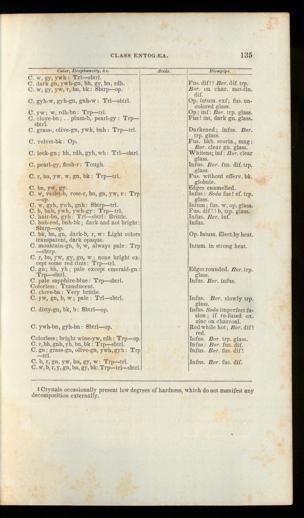 CLASS ENTOGÆA. 135
Color, Diaphaneity, &c. Acids. Blowpipe.
C. w, gy, ywh: Trl—sbtrl.
C. dark gn, ywh-gn, bh, gy, bn, rdh. Fus. dif!! Bor. dif. trp.
C. w, gy, yw, r, bn, bk: Sbtrp—op. Bor. on char. met-lin. dif.
C. gyh-w, gyh-gn, gnh-w: Trl—sbtrl. Op. intum. exf; fus. uncolored glass.
C. yw; w, rdh-bn: Trp—trl. Op; inf: Bor. trp. glass.
C. clove-bn; plum-b, pearl-gy: Trp—sbtrl. Fus! int, dark gn. glass.
C. grass-, olive-gn, ywh, bnh: Trp—trl. Darkened; infus: Bor. trp. glass.
C. velvet-bk: Op. Fus. bkh. scoria, mag: Bor. clear gn. glass.
C. leek-gn; bh, rdh, gyh, wh: Trl—sbtrl. Whitens; inf: Bor. clear glass.
C. pearl-gy, flesh-r: Tough. Infus: Bor. fus. dif. trp. glass.
C. r, bn, yw, w, gn, bk: Trp—trl. Fus. without efferv. bk. globule.
C. bn, yw, gy. Edges enamelled.
C. w, violet-b, rose-r, bn, gn, yw, r: Trp—op. Infus: Soda fus! ef. trp. glass.
C. w, gyh, ywh, gnh: Sbtrp—trl. Intum; fus. w, op. glass.
C. b, bnh, ywh, ywh-gy: Trp—trl. Fus. dif!! b, trp. glass.
C. hair-bn, gyh: Trl—sbtrl: Brittle. Infus: Bor. inf.
C. bnh-red, bnh-bk; dark and not bright: Sbtrp—op. Infus.
C. bk, bn, gn, dark-b, r, w: Light colors transparent, dark opaque. Op. Intum. Elect. by heat.
C. mountain-gn, b, w, always pale: Trp—sbtrp. Intum. in strong heat.
C. r, bn, yw, gy, gn, w; none bright except some red tints: Trp—trl.
C. gn; bh, yh; pale except emerald-gn: Trp—sbtrl. Edges rounded. Bor. trp. glass.
C. pale sapphire-blue: Trp—sbtrl. Infus: Bor. infus.
Colorless: Translucent.
C. clove-bn: Very brittle.
C. yw, gn, b, w; pale: Trl—sbtrl. Infus. Bor. slowly trp. glass.
C. dirty-gn, bk, b: Sbtrl—op. Infus. Soda imperfect fusion; if re-fused ox. zinc on charcoal.
C. ywh-bn, gyh-bn: Sbtrl—op. Red while hot; Bor. dif! red.
Colorless; bright wine-yw, rdh: Trp—op. Infus: Bor. trp. glass.
C. r, bh, gnh, yh, bn, bk: Trp—sbtrl. Infus: Bor. fus. dif.
C. gn; grass-gn, olive-gn, ywh, gyh: Trp—trl. Infus: Bor. fus. dif!
C. b, r, gn, yw, bn, gy, w: Trp—trl. Infus: Bor. fus. dif.
C. w, b, r, y, gn, bn, gy, bk: Trp—trl—sbtrl.
‡ Crystals occasionally present low degrees of hardness, which do not manifest any
decomposition externally.